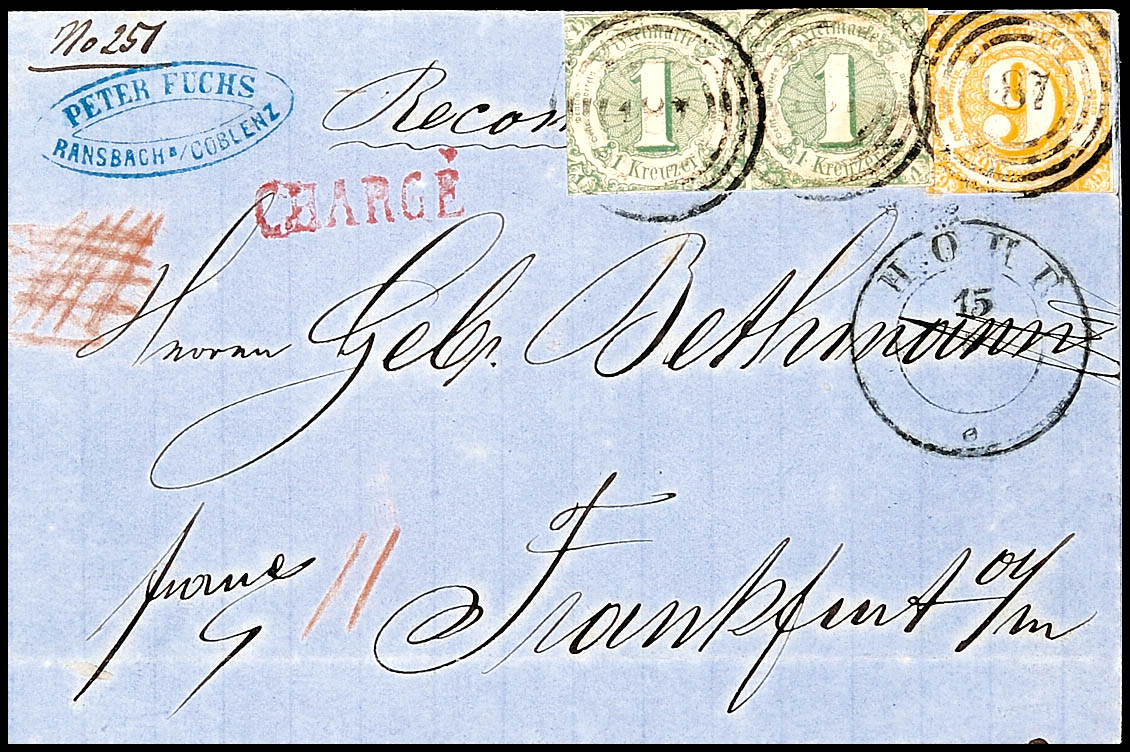 No 251
PETER FUCHS
RANSBACH B/COBLENZ
Recom
CHARGÈ
Freimarke
1
1 Kreuzer
Freimarke
1
1 Kreuzer
9
87
HÖHR
15
Herren Gebr. Bethmann
franco
11
Frankfurt a/m